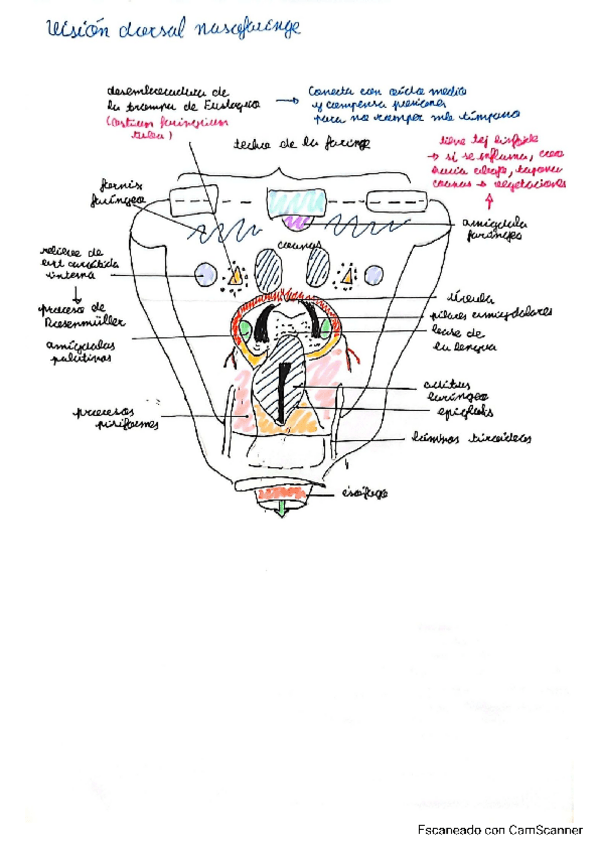 Visión dorsal nasofaringe
desembocadura de
la trompa de Eustaquio → Conecta con oído medio
y compensa presiones
para no romper mb tímpano
(ostium faringicum
tubae)
techo de la faringe
tiene tej linfoide
→ si se inflama, crece
hacia abajo, tapona
coanas → vegetaciones
fornix
faríngeo
amígdala
faríngea
coanas
relieve de
art carótida
interna
proceso de
Rosenmüller
amígdalas
palatinas
úvula
pilares amigdalares
base de
la lengua
aditus
laríngeo
epiglotis
procesos
piriformes
láminas tiroideas
esófago
Escaneado con CamScanner